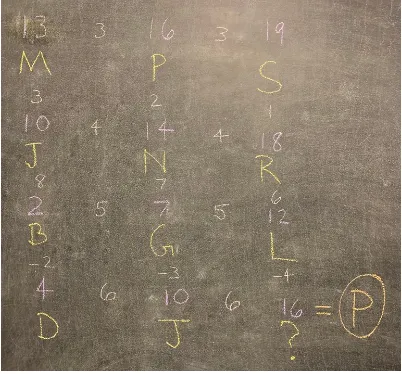 13 3 16 3 19
M P S
3 2 1
10 4 14 4 18
J N R
8 7 6
2 5 7 5 12
B G L
-2 -3 -4
4 6 10 6 16 = P
D J ?